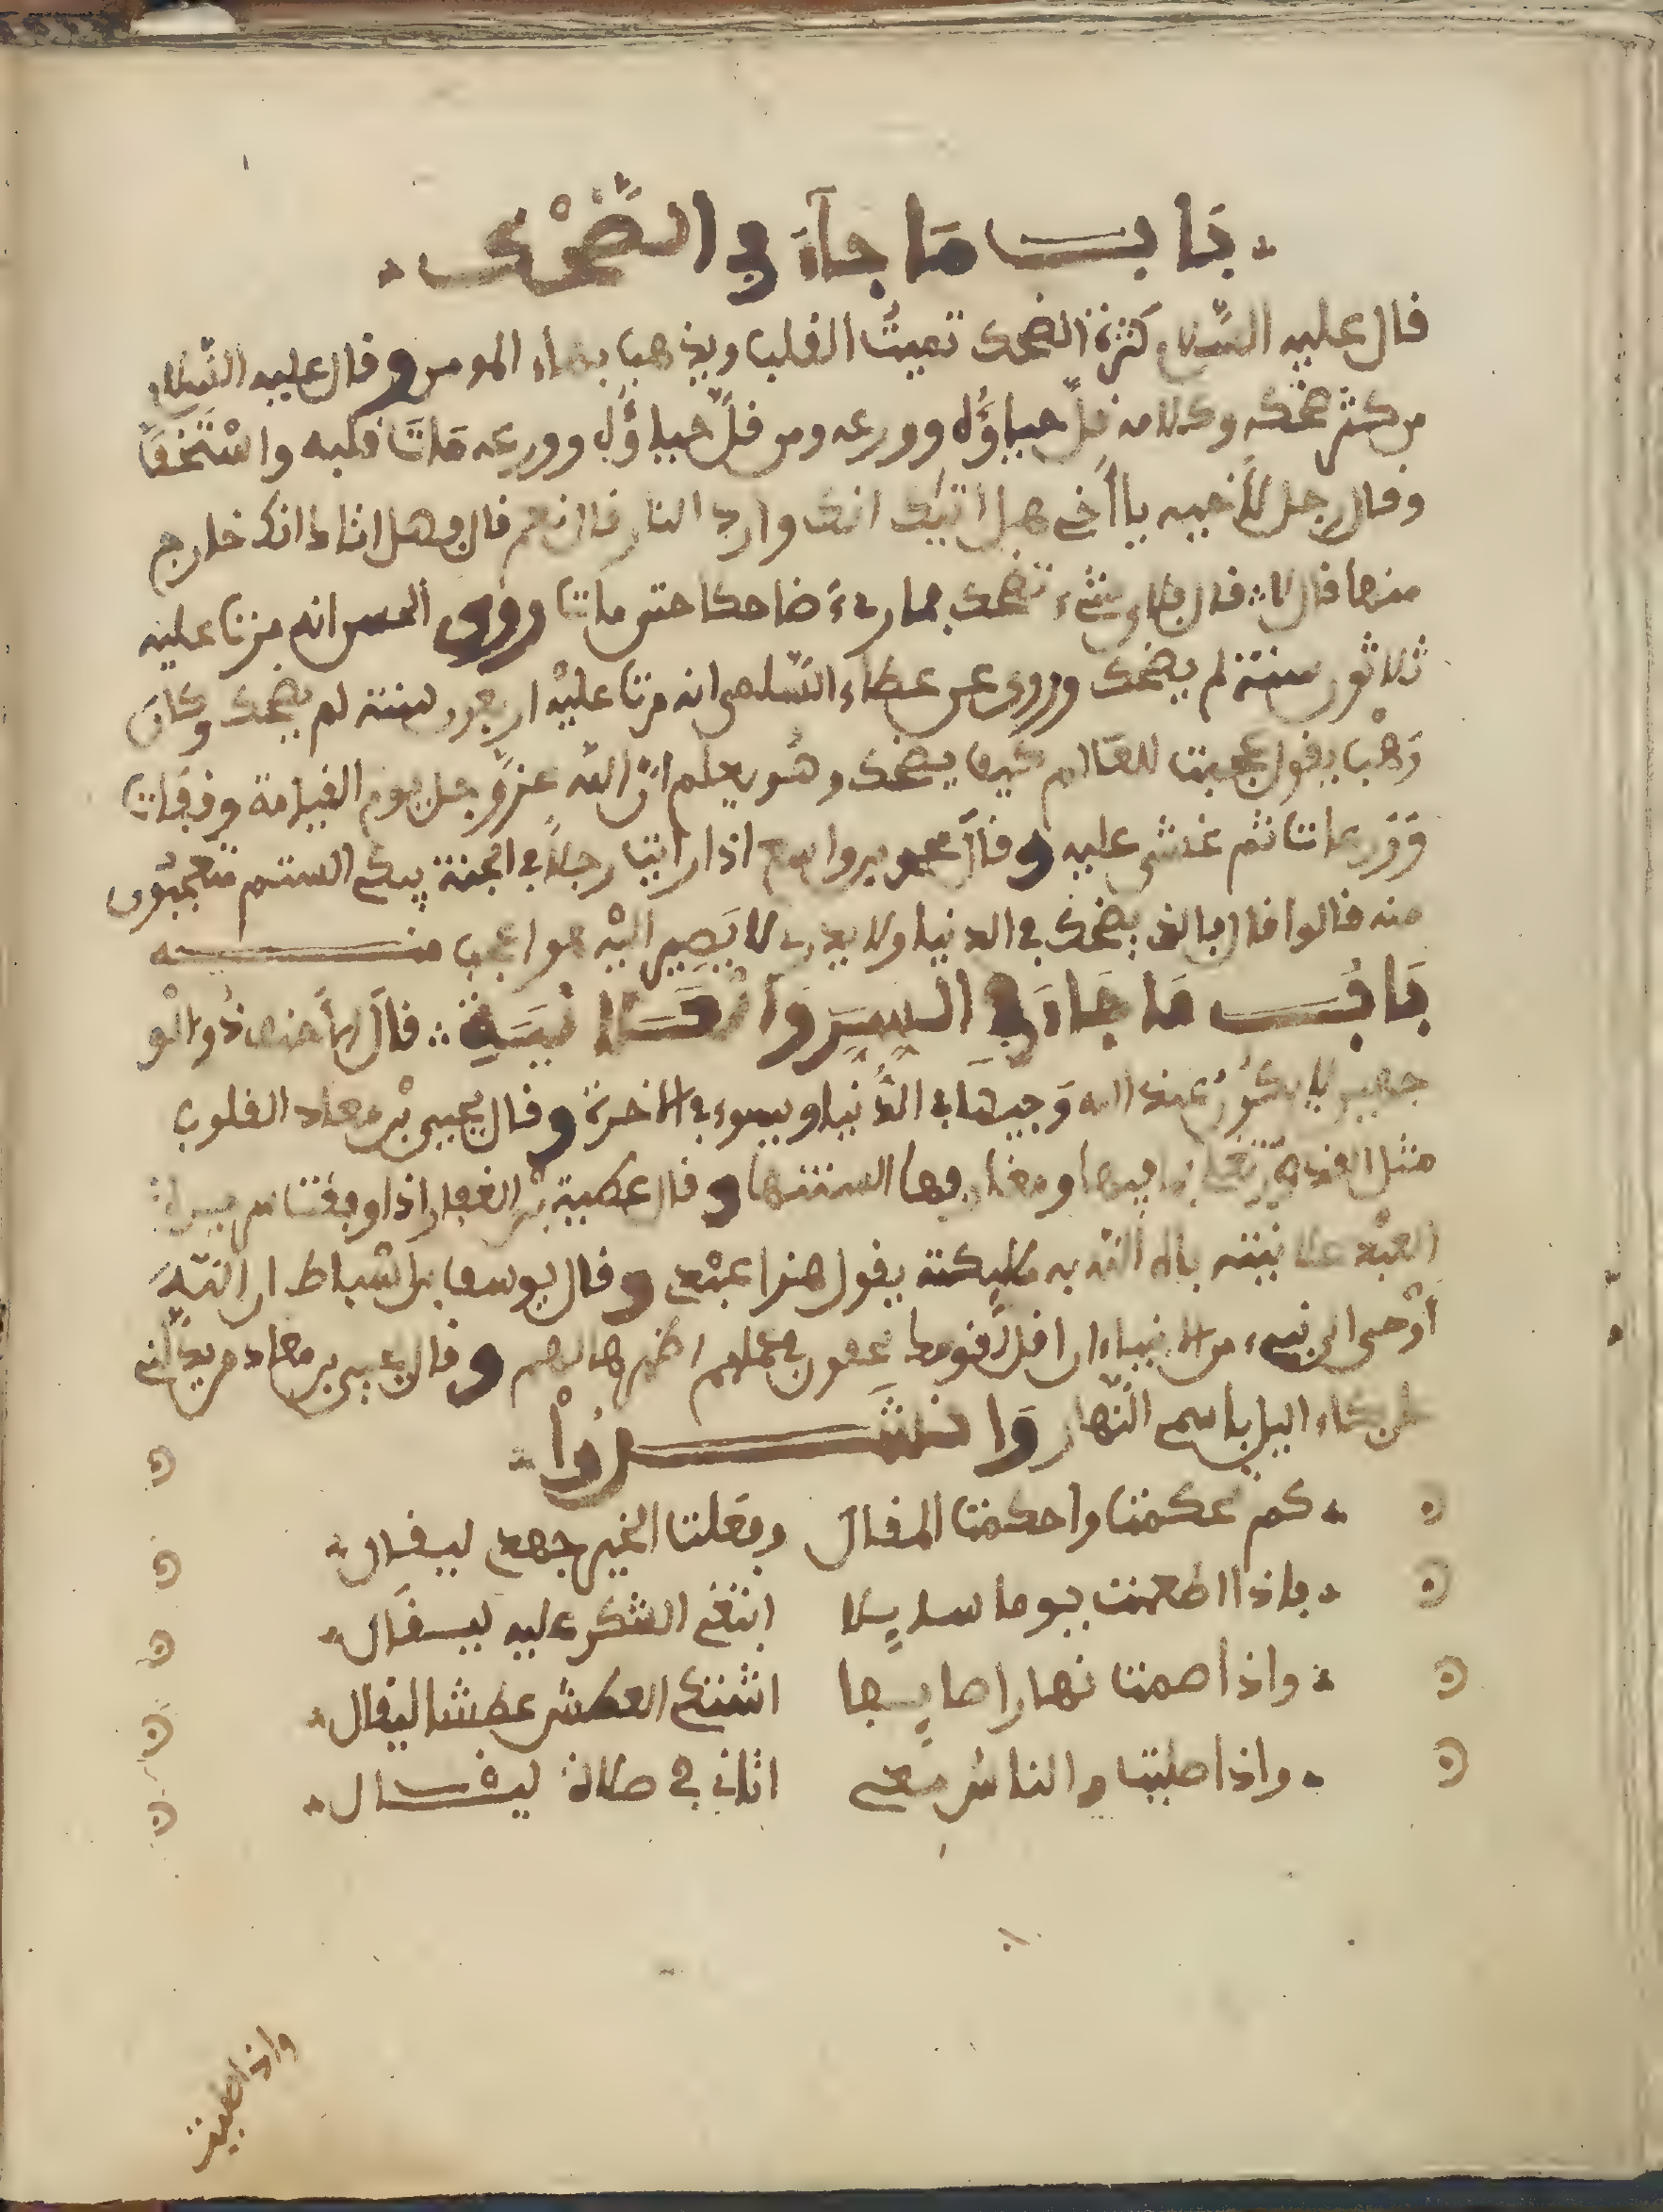 باب ما جاء في الضحك
قال عليه السلام كثرة الضحك تميت القلب ويذهب بهاء المومن وقال عليه السلام
من كثر ضحكه وكلامه قل حياؤه وورعه ومن قل حياؤه وورعه مات قلبه واستخف
وقال رجل لأخيه يا أخي هل اتيك انك وارد النار قال نعم قال وهل اتاك انك خارج
منها قال لا قال ففي شيء تضحك فما رئ ضاحكا حتى مات وروى الحسن انه مرت عليه
ثلاثون سنة لم يضحك وروى عن عطاء السلمى انه مرت عليه اربعون سنة لم يضحك وكان
وهب يقول عجبت للعالم كيف يضحك وهو يعلم ان الله عز وجل يوم القيامة وقفات
وفزعات ثم غشى عليه وقال محمد بن واسع اذا رايت رجلا في الجنة يبكي الستم تتعجبون
منه قالوا قال فالذي يضحك في الدنيا ولا يدرى لا يصير اليه هو اعجب منه
باب ما جاء في السر والعلانية قال لا خذى ذو الو
جهين لا يكون عند الله وجيها في الدنيا ويسوء في الاخرة وقال يحيى بن معاذ القلوب
مثل القدور تغلي بما فيها ومغارفها السنتها وقال عطية بن الغفار اذا وافقت سريرة
العبد علانيته باهى الله به ملئكته يقول هذا عبدي وقال يوسف بن اشباط ان الله
أوحى الى نبيء من الانبياء ان قل لقومك يخفون عملهم اظهرها لهم وقال يحيى بن معاذ من يدلني
على بكاء اليل باسم النهار وانشدوا
كم عكمت واحكمت المقال وفعلت الخير جهدي ليقال
فاذا اطعمت يوما سايلا ابتغي الشكر عليه ليقال
واذا صمت نهارا صايفا اشتكي العطش عطشا ليقال
واذا صليت والناس معي اتانى في صلاة ليقال
واذا صليت